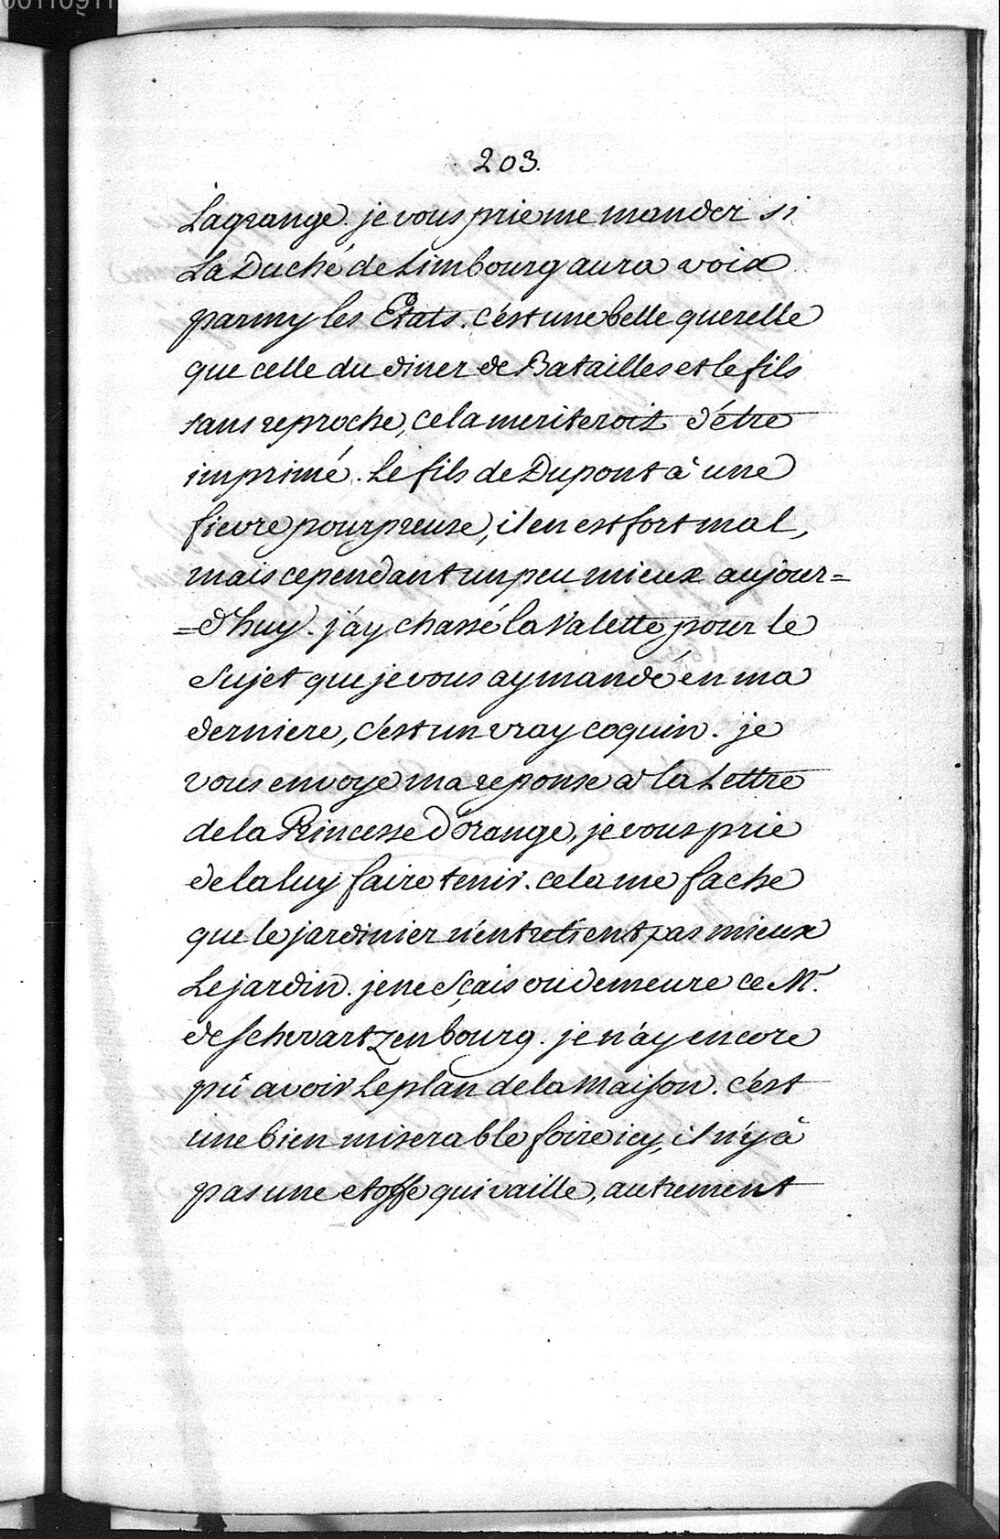 00110911
203.
Lagrange. je vous prie me mander si
La Duché de Limbourg aura voix
parmy les Etats. c'est une belle querelle
que celle du diner de Batailles et le fils
sans reproche, cela meriteroit d'être
imprimé. Le fils de Dupont à une
fievre pourpreuse, il en est fort mal,
mais cependant un peu mieux aujour=
=d'huy. j'ay chassé la Valette pour le
Sujet que je vous ay mandé en ma
derniere, c'est un vray coquin. je
vous envoye ma reponse à la Lettre
de la Princesse d'orange, je vous prie
de la luy faire tenir. cela me fache
que le jardinier n'entretient pas mieux
Le jardin. je ne Sçais où demeure ce Mr.
de Schwartzenbourg. je n'ay encore
pû avoir Le plan de la Maison. c'est
une bien miserable foire icy, il n'y à
pas une etoffe qui vaille, autrement